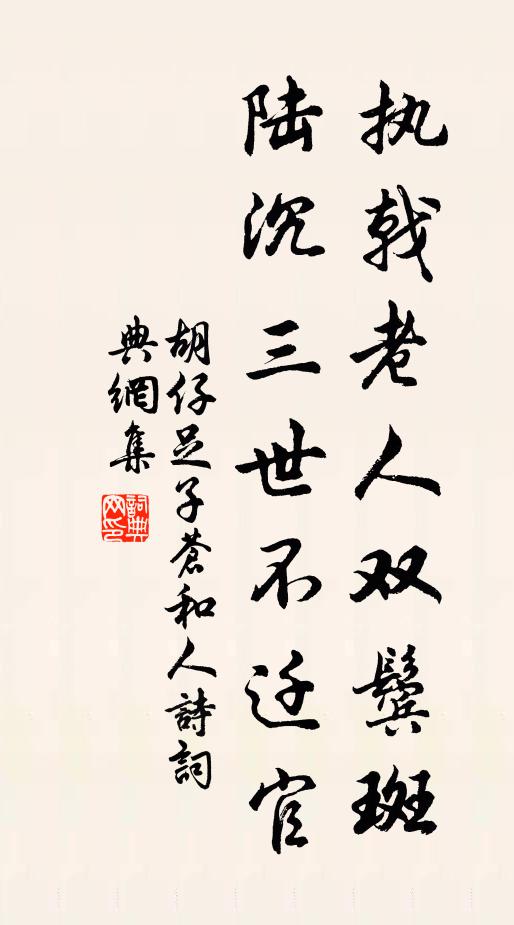 执戟老人双鬓斑
陆沉三世不迁官
胡仔足子蒼和人詩詞
典網集
詞典网印